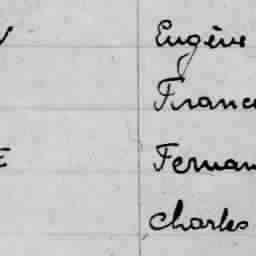 Eugène
France
Fernan
Charles